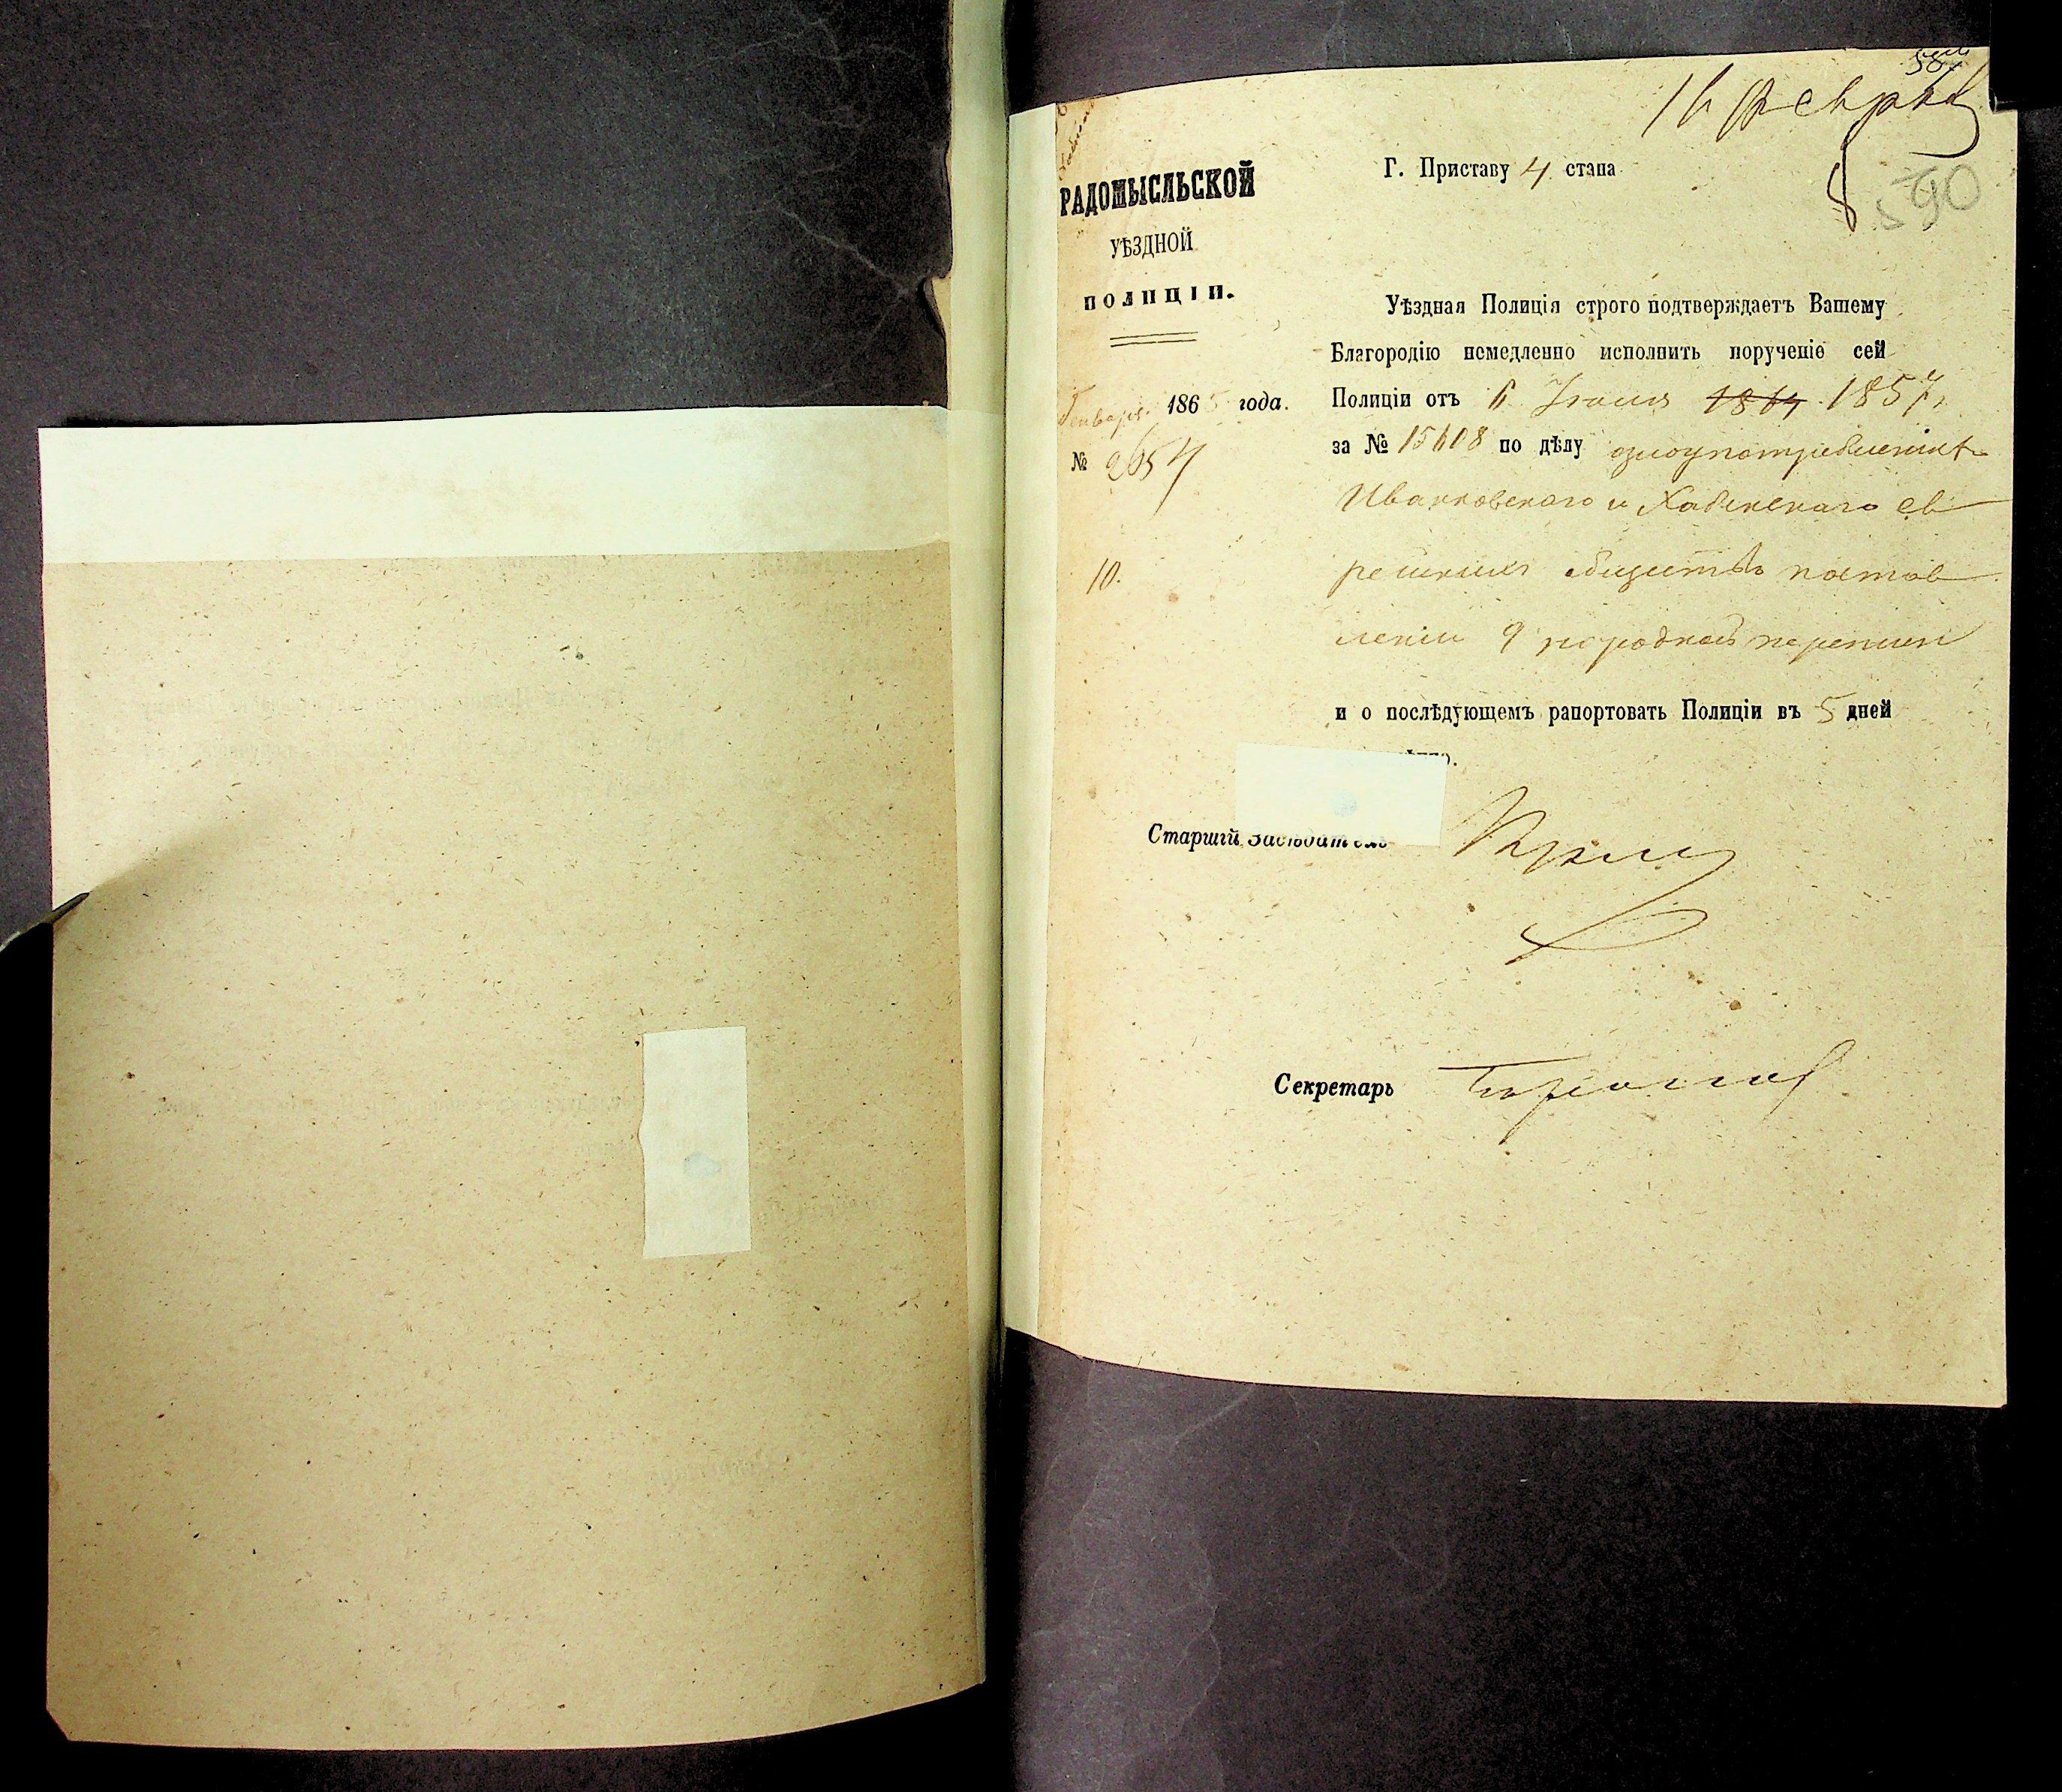 16 Февра
590
РАДОМЫСЛЬСКОЙ
УѢЗДНОЙ
ПОЛИЦІИ.
Генваря 1865 года.
№ 2654
10.
Г. Приставу 4 стана
Уѣздная Полиція строго подтверждаетъ Вашему
Благородію немедленно исполнить порученіе сей
Полиціи отъ 6 1864 1857
за № 15608 по дѣлу озлоупотребленіях
Иванковскаго и Хабенскаго ев
рейских обществъ
9 народной переписи
и о послѣдующемъ рапортовать Полиціи въ 5 дней
Старшій Засѣдатель
Секретарь